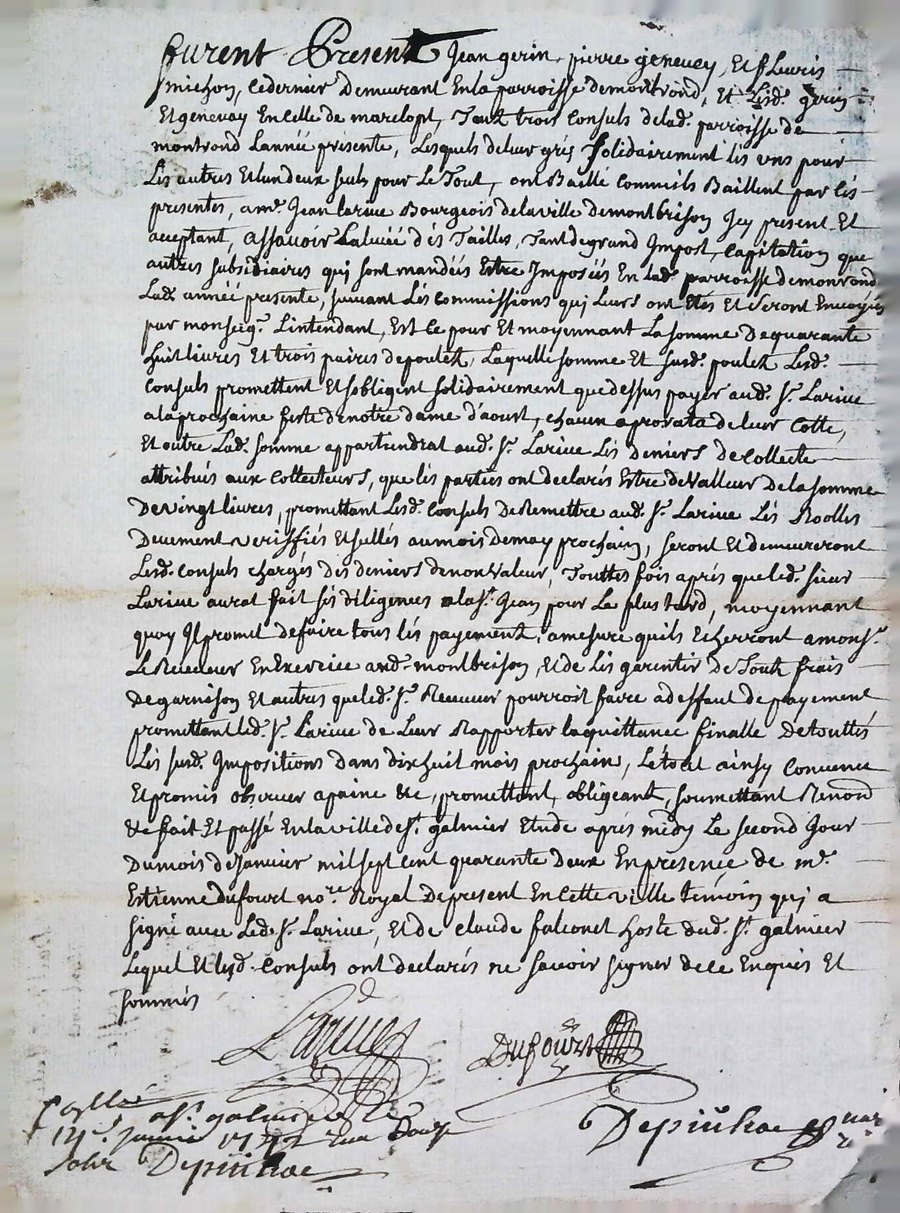 furent Present Jean gerin, pierre genevey, Et fleuris
michon, Ledernier Demeurant Enla parroisse demontrond, Et Lesd. gerin
Et genevay En celle de marclopt, Tout trois Consuls delad. parroisse de
montrond Lanneé présente, Lesquels deleur gréz solidairement les vns pour
Les autres Et lun deux seuls pour Le Tout, ont Baillé Comme ils Baillent par Ces
presentes, a me. Jean Larive Bourgeois dela ville Demontbrison Jcy present Et
acceptant, assavoir Laleveé dés Tailles, Tant de grand Impost, Capitation que
autres subsidiaires quj sont mandéés Estre Imposéés En Lad. parroisse demonrond
Lad. anneé presente, suivant Lés Commissions quj Leurs ont Etés Et seront Envoyés
par monseigr. Lintendant, Est ce pour Et moyennant La somme De quarante
huit livres Et trois paires de poulets, Laquelle somme Et susd. poulets Lesd.
Consuls promettent Et sobligent solidairement que dessus payer aud. sr. Larive
ala prochaine feste de notre dame d'aoust, chacun aprorata de leur Cotte,
Et outre Lad. somme appartiendrat aud. sr. Larive Les deniers de collecte
attribués aux Collecteurs, que lés parties ont declarés Estre de Valleur De la somme
De vingt livres, promettant Lesd. Consuls De Remettre aud. sr. Larive Lés Roolles
Deuement vériffiés Et sellés au mois De may prochain, seront Et demeureront
Lesd. Consuls chargés Des deniers de non Valeur, Touttes fois aprés que led. sieur
Larive aurat fait sés diligences a la st. Jean pour La plus tard, moyennant
quoy Il promet de faire tous lés payements, amesure quils Echerront a monsr.
Le Receveur En Exercice aud. montbrison, Et de Lés garentir de Touts frais
De garnison Et autres que led. sr. Receveur pourroit faire a deffaut de payement
promettant led. sr. Larive de Leur Rapporter la quittance finalle de touttés
Lés susd. Impositions dans dix huit mois prochain, Le tout ainsy Convenu
Et promis observer apaine &c, promettant, obligeant, soumettant Renond
&c fait Et passé En la ville de st. galmier Etude aprés midy Le second Jour
Du mois de Janvier mil sept cent quarante deux En présence de me.
Estienne Dufourt nore. Royal De present En Cette ville témoin quj a
signé avec Led. sr. Larive, Et de claude falconet hoste dud. st. galmier
Lequel Et lesd. Consuls ont declarés ne savoir signer de ce Enquis Et
sommés
Larive
Dufourt
Depinhac
a st. galmier
Janvier 1742
Depinhac